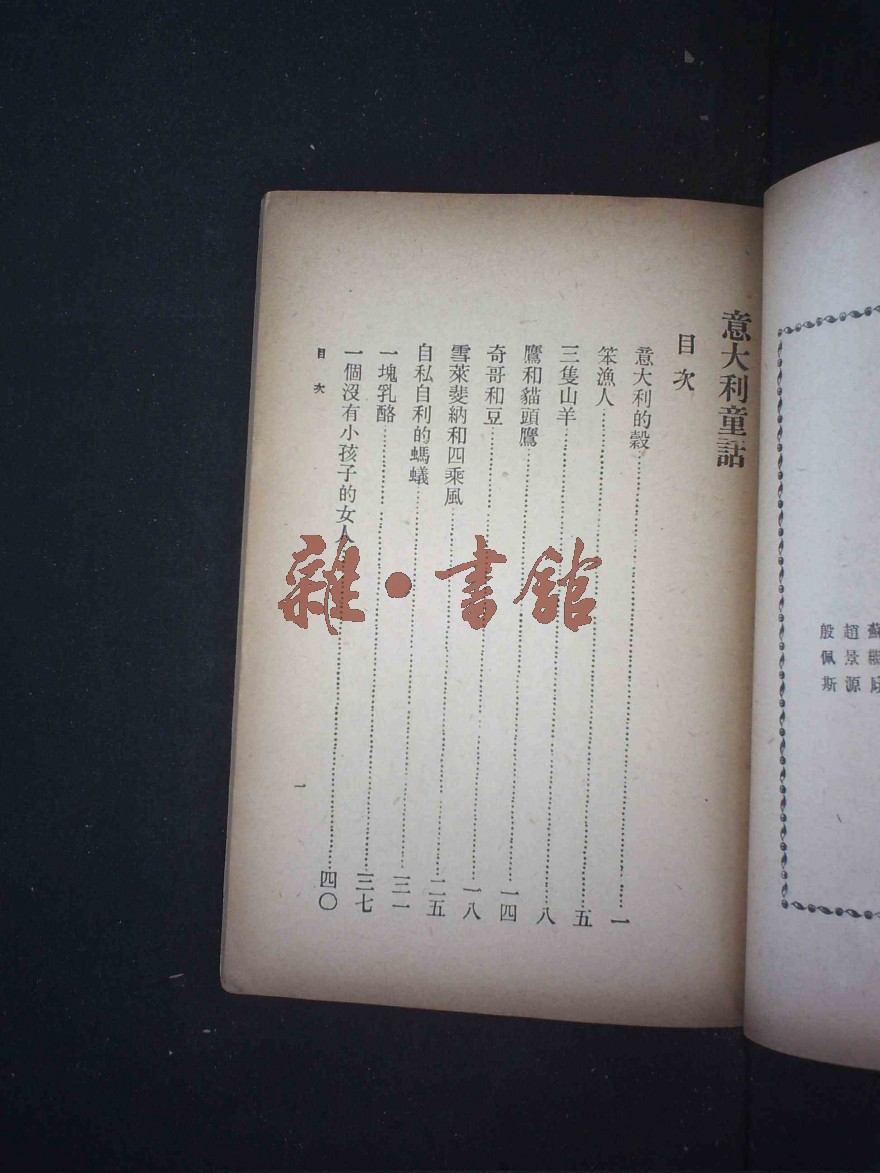 蘇
趙景源
殷佩斯
意大利童話
目次
意大利的穀……一
笨漁人……五
三隻山羊……八
鷹和貓頭鷹……一四
奇哥和豆……一八
雪萊斐納和四乘風……二五
自私自利的螞蟻……三一
一塊乳酪……三七
一個沒有小孩子的女人……四〇
目次
一
雜·書館